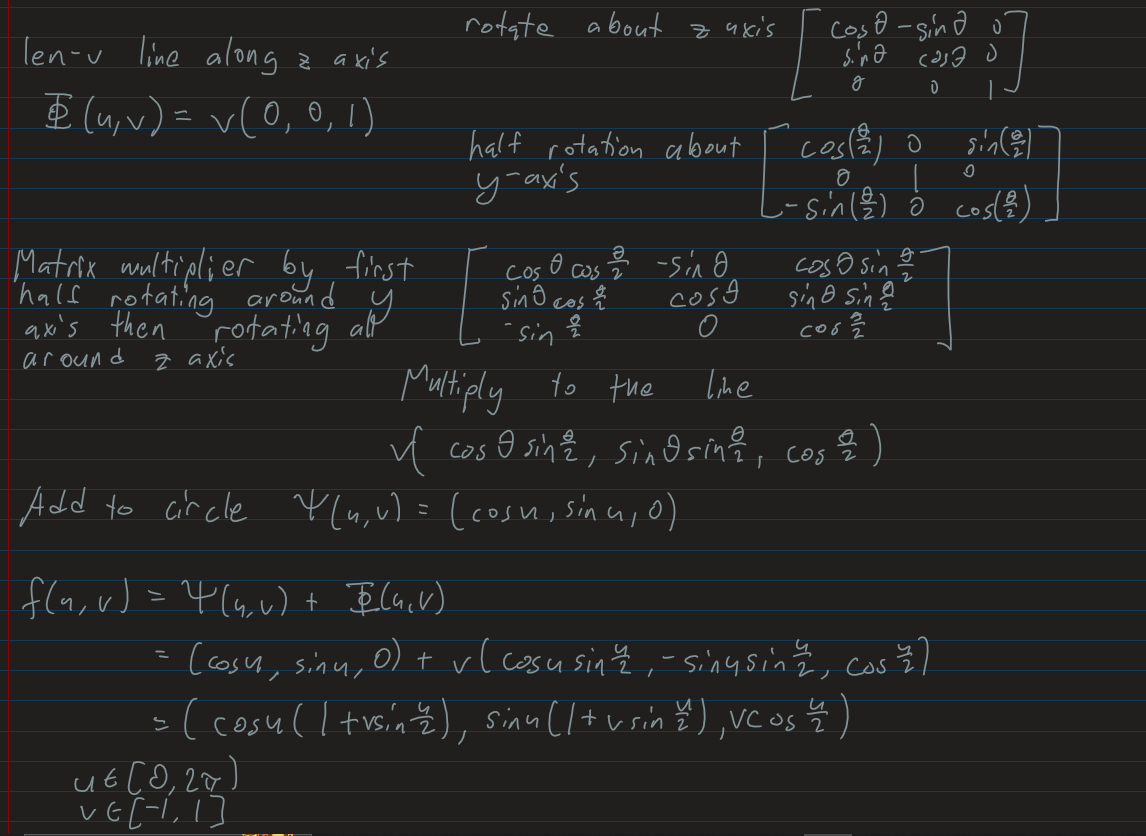 len-v line along z axis
Φ(u,v) = v(0, 0, 1)
rotate about z axis [cosθ -sinθ 0
sinθ cosθ 0
0 0 1]
half rotation about y-axis [cos(θ/2) 0 sin(θ/2)
0 1 0
-sin(θ/2) 0 cos(θ/2)]
Matrix multiplier by first
half rotating around y
axis then rotating all
around z axis
[cosθ cos θ/2 -sinθ cosθ sin θ/2
sinθ cos θ/2 cosθ sinθ sin θ/2
-sin θ/2 0 cos θ/2]
Multiply to the line
v( cosθ sin θ/2, sinθ sin θ/2, cos θ/2 )
Add to circle Ψ(u,v) = (cosu, sinu, 0)
f(u,v) = Ψ(u,v) + Φ(u,v)
= (cosu, sinu, 0) + v(cosu sin u/2, -sinu sin u/2, cos u/2)
= ( cosu(1+vsin u/2), sinu(1+vsin u/2), vcos u/2 )
u∈[0, 2π)
v∈[-1, 1]